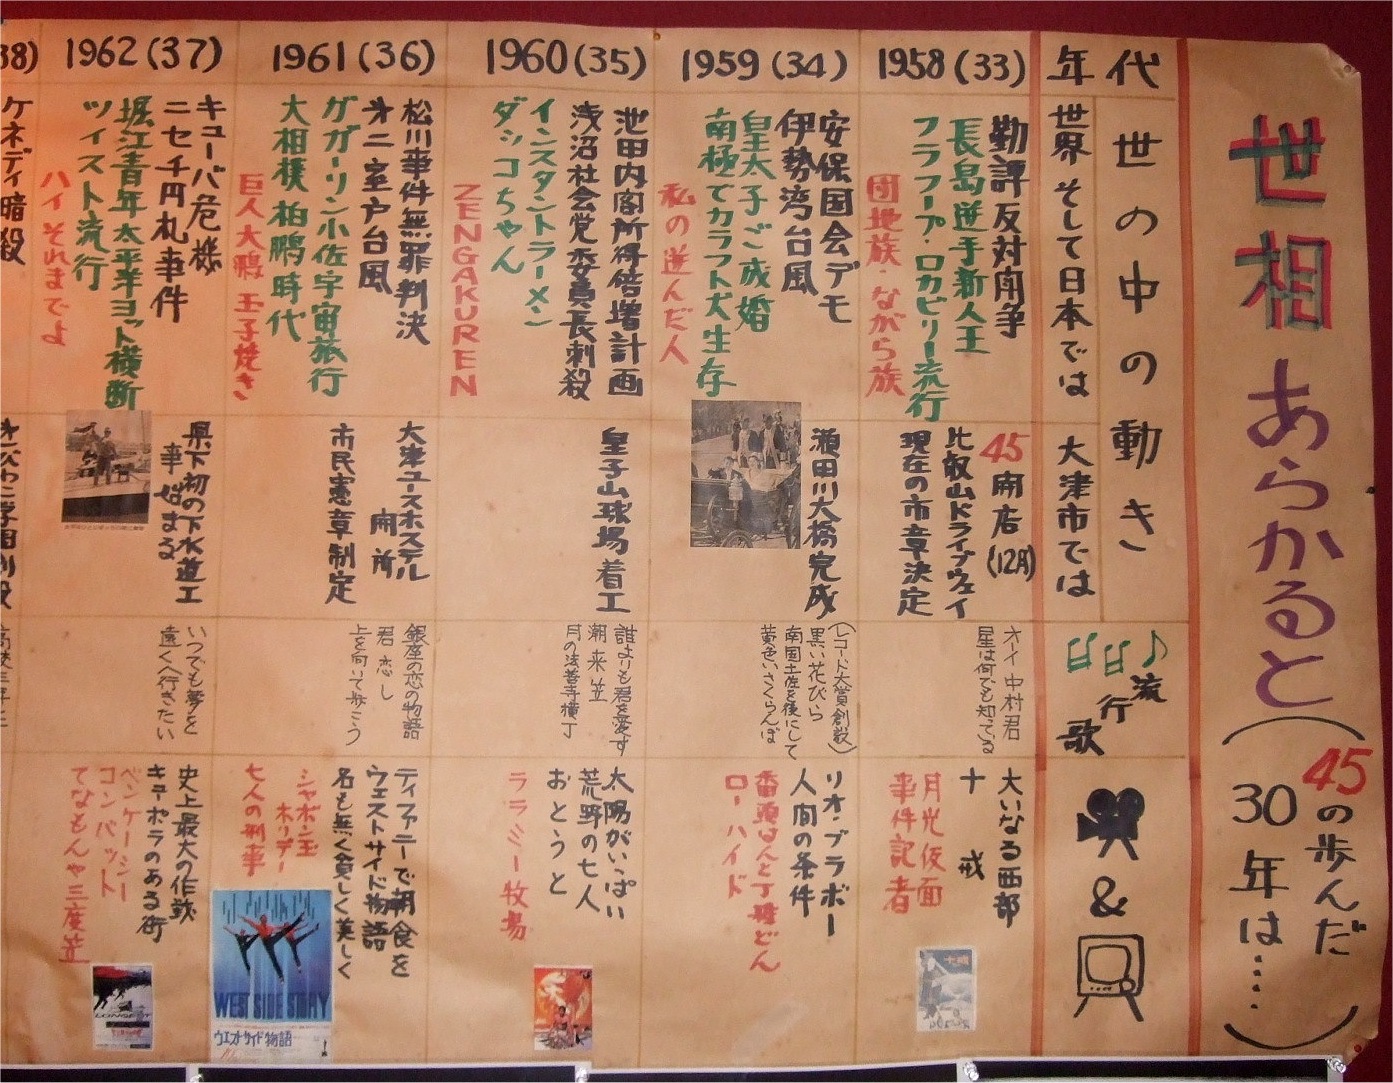 世相あらかると
(45の歩んだ
30年は……)
年代
世の中の動き
世界 そして日本では
大津市では
♪流行歌
&
1958(33)
勤評反対闘争
長島逆手新人王
フラフープ・ロカビリー流行
団地族・ながら族
45開店(12月)
比叡山ドライブウェイ
現在の市章決定
オーイ中村君
星は何でも知っている
大いなる西部
十戒
月光仮面
事件記者
十戒
1959(34)
安保国会デモ
伊勢湾台風
皇太子ご成婚
南極でカラフト犬生存
私の選んだ人
瀬田川大橋完成
(レコード大賞創設)
黒い花びら
南国土佐を後にして
黄色いさくらんぼ
リオ・ブラボー
人間の条件
番頭はんと丁稚どん
ローハイド
1960(35)
池田内閣所得倍増計画
浅沼社会党委員長刺殺
インスタントラーメン
ダッコちゃん
ZENGAKUREN
皇子山球場着工
誰よりも君を愛す
潮来笠
月の法善寺横丁
太陽がいっぱい
荒野の七人
おとうと
ララミー牧場
1961(36)
松川事件無罪判決
第二室戸台風
ガガーリン小佐宇宙旅行
大相撲 柏鵬時代
巨人 大鵬 玉子焼き
大津ユースホステル
開所
市民憲章制定
銀座の恋の物語
君恋し
上を向いて歩こう
ティファニーで朝食を
ウェストサイド物語
名も無く貧しく美しく
シャボン玉
ホリデー
七人の刑事
WEST SIDE STORY
ウエストサイド物語
1962(37)
キューバ危機
ニセ千円札事件
堀江青年太平洋ヨット横断
ツイスト流行
ハイそれまでよ
県下初の下水道工
事始まる
いつでも夢を
遠くへ行きたい
史上最大の作戦
キューポラのある街
ベンケーシー
コンバット
てなもんや三度笠
38)
ケネディ暗殺
高校三年生